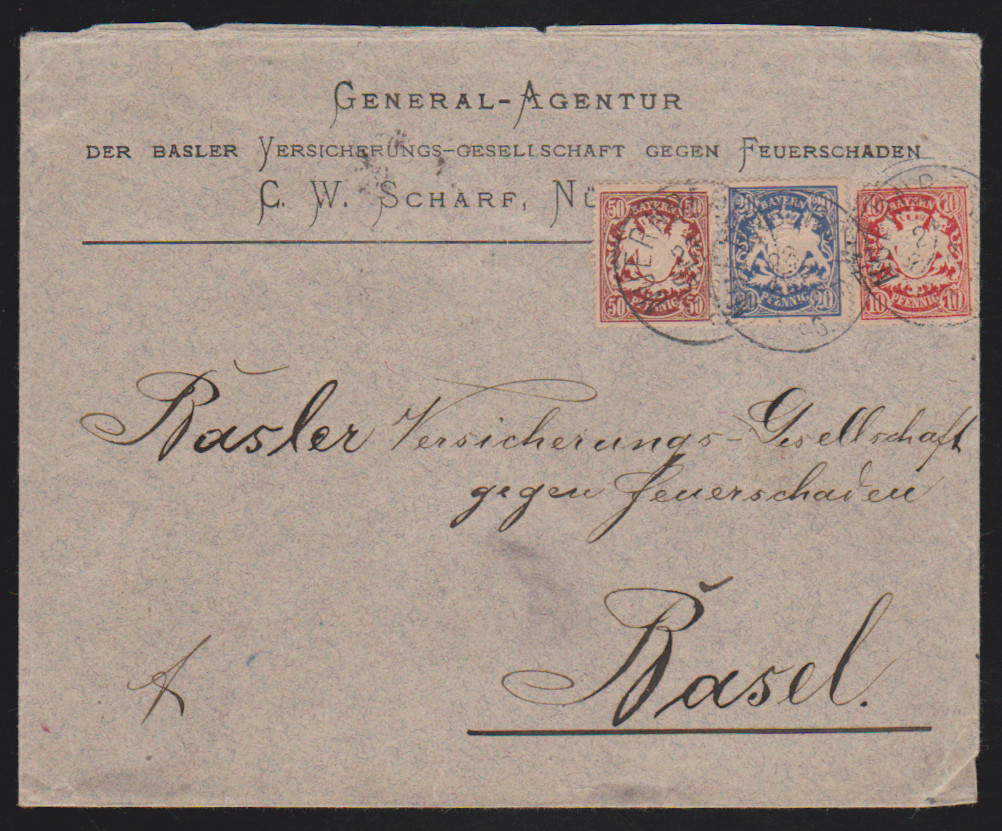 GENERAL-AGENTUR
DER BASLER VERSICHERUNGS-GESELLSCHAFT GEGEN FEUERSCHADEN
C. W. SCHARF, NÜ
50 BAYERN 50
50 PFENNIG 50
20 BAYERN 20
20 PFENNIG 20
10 BAYERN 10
10 PFENNIG 10
Basler Versicherungs-Gesellschaft
gegen Feuerschaden
Basel.